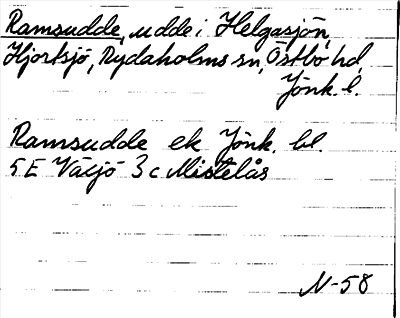 Ramsudde, udde i Helgasjön,
Hjortsjö, Rydaholms sn, Östbo hd,
Jönk. l.
Ramsudde ek Jönk. bl.
5E Växjö 3c Mistelås
N-58